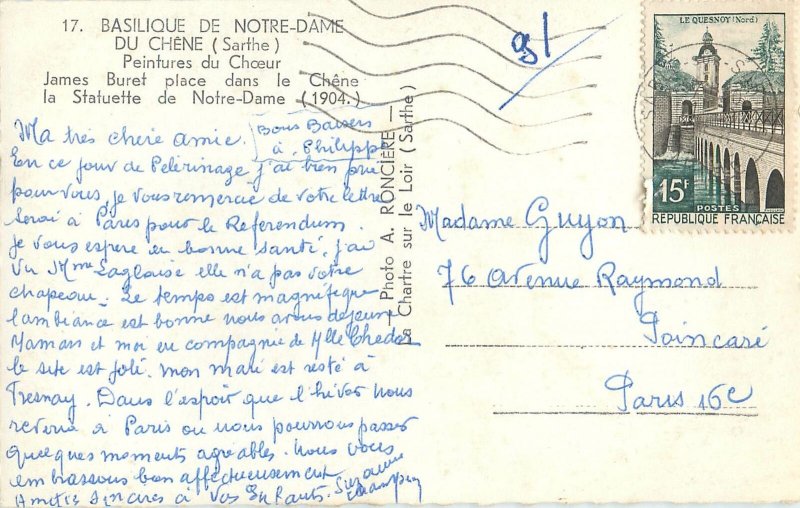 17. BASILIQUE DE NOTRE-DAME
DU CHÊNE (Sarthe)
Peintures du Chœur
James Buret place dans le Chêne
la Statuette de Notre-Dame (1904.)
Ma très chère amie.
Bons Baisers
à Philippe
En ce jour de Pelerinage j'ai bien prié
pour vous, je vous remercie de votre lettre
serai à Paris pour le Referendum.
je vous espere en bonne santé. j'ai
vu Mme Laglaise elle n'a pas votre
chapeau. Le temps est magnifique
l'ambiance est bonne nous avons dejeuné
Maman et moi en compagnie de Mlle
le site est joli. mon mari est resté à
Fresnay. Dans l'espoir que l'hiver nous
reverra à Paris ou nous pourrons passer
quelques moments agréables. nous vous
embrassons bien affectueusement
Amitiés sincères à vos Enfants. Suzanne
Photo A. RONCIÈRE
La Chartre sur le Loir (Sarthe)
LE QUESNOY (Nord)
15F
POSTES
RÉPUBLIQUE FRANÇAISE
Madame Guyon
76 avenue Raymond
Poincaré
Paris 16e